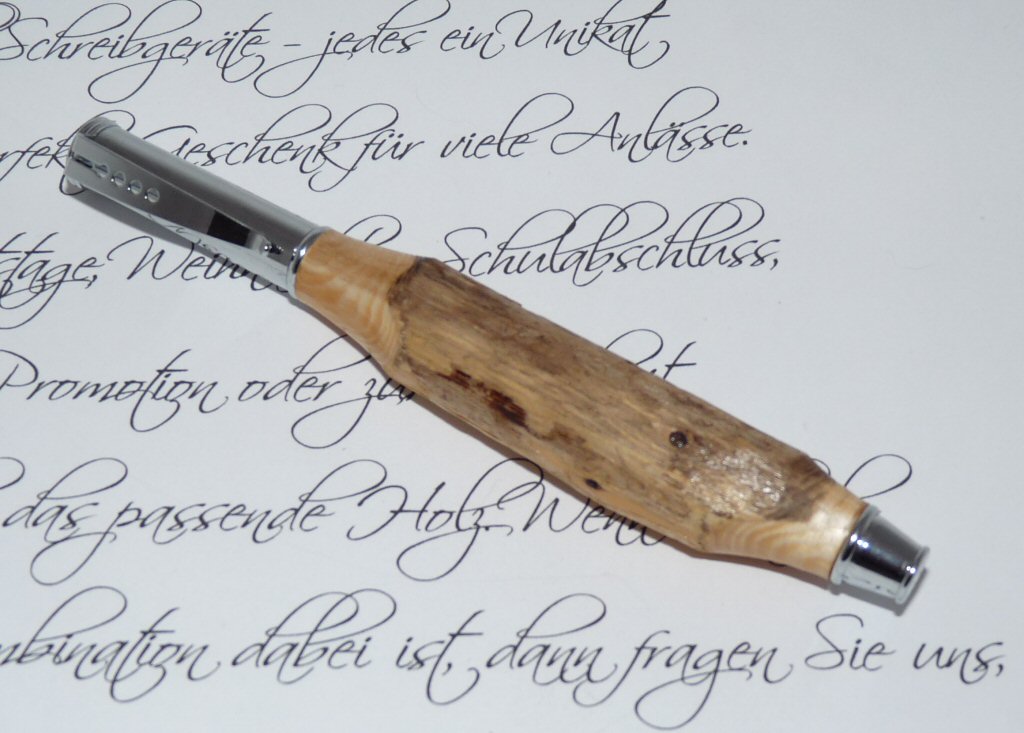 Schreibgeräte - jedes ein Unikat,
Geschenk für viele Anlässe.
Schulabschluss,
Promotion oder
das passende Holz. Wenn
dabei ist, dann fragen Sie uns,